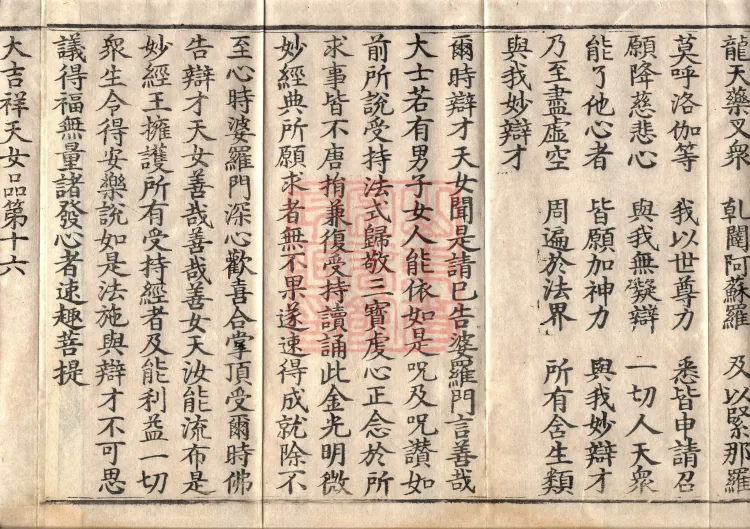 龍天藥叉衆　乹闥阿蘇羅　及以緊那羅
莫呼洛伽等　我以世尊力　悉皆申請召
願降慈悲心　與我無礙辯　一切人天衆
能了他心者　皆願加神力　與我妙辯才
乃至盡虛空　周遍於法界　所有含生類
與我妙辯才
爾時辯才天女聞是請已告婆羅門言善哉
大士若有男子女人能依如是呪及呪讚如
前所說受持法式歸敬三寶虔心正念於所
求事皆不唐捐兼復受持讀誦此金光明微
妙經典所願求者無不果遂速得成就除不
至心時婆羅門深心歡喜合掌頂受爾時佛
告辯才天女善哉善哉善女天汝能流布是
妙經王擁護所有受持經者及能利益一切
衆生令得安樂說如是法施與辯才不可思
議得福無量諸發心者速趣菩提
大吉祥天女品第十六